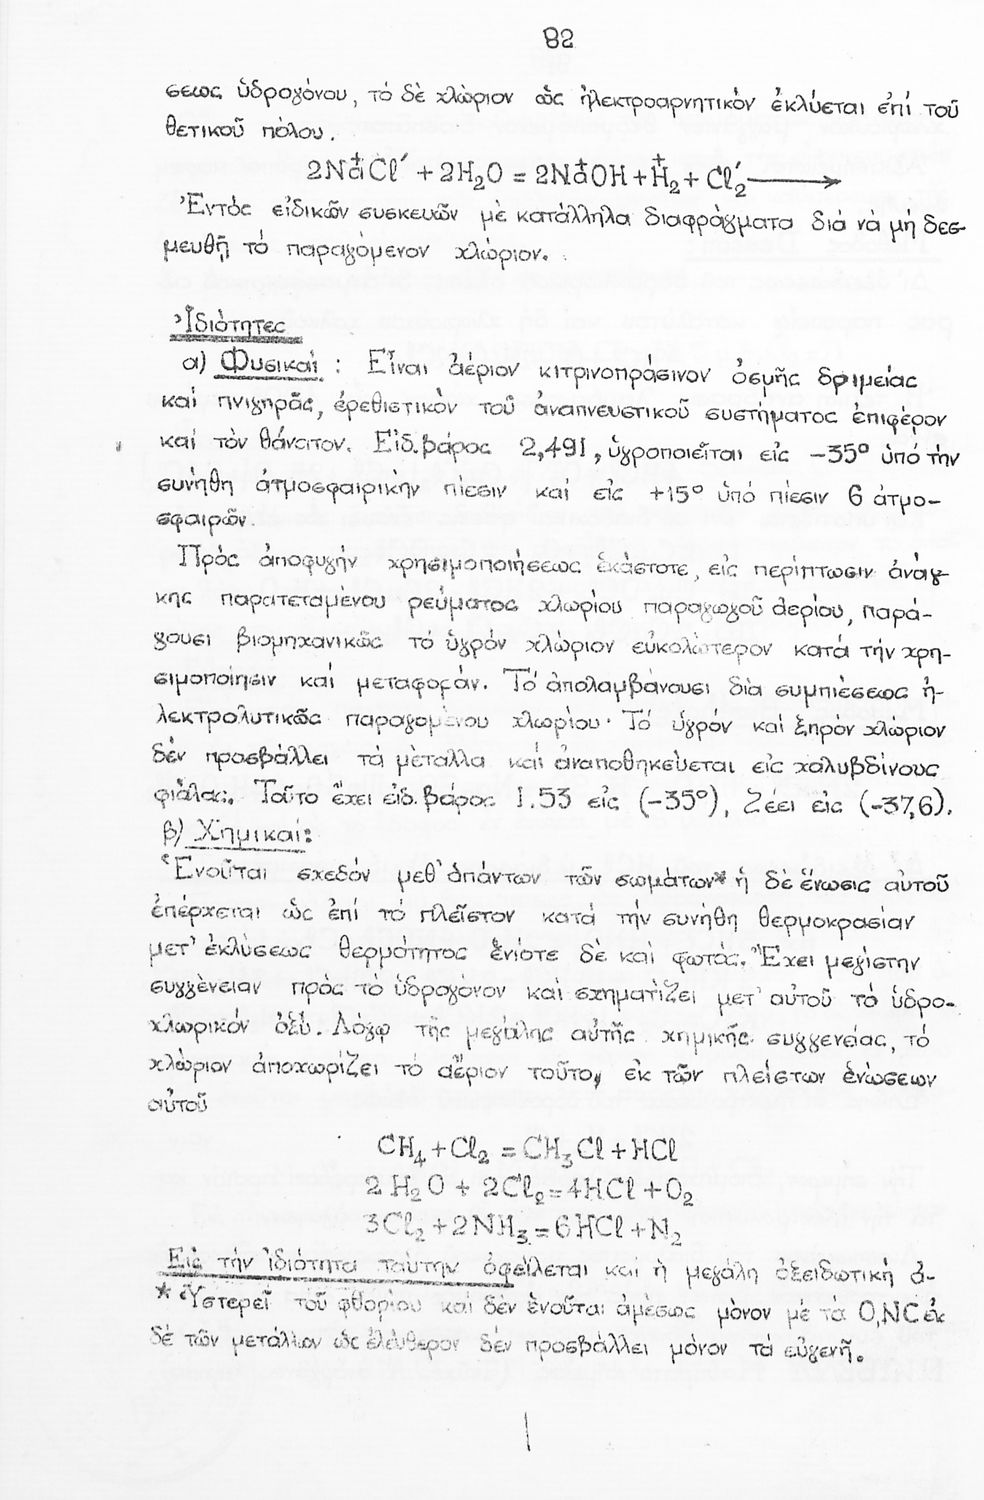 82
σεως ὑδρογόνου, τό δέ χλώριον ὡς ἠλεκτροαρνητικόν ἐκλύεται ἐπί τοῦ
θετικοῦ πόλου.
2Na⁺Cl′ + 2H₂O = 2Na⁺OH + H⁺₂ + Cl′₂ ⟶
Ἐντός εἰδικῶν συσκευῶν μέ κατάλληλα διαφράγματα διά νά μή δεσ-
μευθῇ τό παραγόμενον χλώριον.
Ἰδιότητες
α) Φυσικαί : Εἶναι ἀέριον κιτρινοπράσινον ὀσμῆς δριμείας
καί πνιγηρᾶς, ἐρεθιστικόν τοῦ ἀναπνευστικοῦ συστήματος ἐπιφέρον
καί τόν θάνατον. Εἰδ. βάρος 2,491, ὑγροποιεῖται εἰς -35° ὑπό τήν
συνήθη ἀτμοσφαιρικήν πίεσιν καί εἰς +15° ὑπό πίεσιν 6 ἀτμο-
σφαιρῶν.
Πρός ἀποφυγήν χρησιμοποιήσεως ἑκάστοτε, εἰς περίπτωσιν ἀνάγ-
κης παρατεταμένου ρεύματος χλωρίου παραγωγοῦ ἀερίου, παρά-
γουσι βιομηχανικῶς τό ὑγρόν χλώριον εὐκολώτερον κατά τήν χρη-
σιμοποίησιν καί μεταφοράν. Τό ἀπολαμβάνουσι διά συμπιέσεως ἠ-
λεκτρολυτικῶς παραγομένου χλωρίου· Τό ὑγρόν καί ξηρόν χλώριον
δέν προσβάλλει τά μέταλλα καί ἀναποθηκεύεται εἰς χαλυβδίνους
φιάλας. Τοῦτο ἔχει εἰδ. βάρος 1.53 εἰς (-35°), ζέει εἰς (-37,6).
β) Χημικαί:
Ἑνοῦται σχεδόν μεθ' ἁπάντων τῶν σωμάτων* ἡ δέ ἕνωσις αὐτοῦ
ἐπέρχεται ὡς ἐπί τό πλεῖστον κατά τήν συνήθη θερμοκρασίαν
μετ' ἐκλύσεως θερμότητος ἐνίοτε δέ καί φωτός. Ἔχει μεγίστην
συγγένειαν πρός τό ὑδρογόνον καί σχηματίζει μετ' αὐτοῦ τό ὑδρο-
χλωρικόν ὀξύ. Λόγῳ τῆς μεγάλης αὐτῆς χημικῆς συγγενείας, τό
χλώριον ἀποχωρίζει τό ἀέριον τοῦτο, ἐκ τῶν πλείστων ἑνώσεων
αὐτοῦ
CH₄ + Cl₂ = CH₃Cl + HCl
2H₂O + 2Cl₂ = 4HCl + O₂
3Cl₂ + 2NH₃ = 6HCl + N₂
Εἰς τήν ἰδιότητα ταύτην ὀφείλεται καί ἡ μεγάλη ὀξειδωτική ἀ-
* Ὑστερεῖ τοῦ φθορίου καί δέν ἑνοῦται ἀμέσως μόνον μέ τά O,N,C ἐκ
δέ τῶν μετάλλων ὡς ἐλεύθερον δέν προσβάλλει μόνον τά εὐγενῆ.